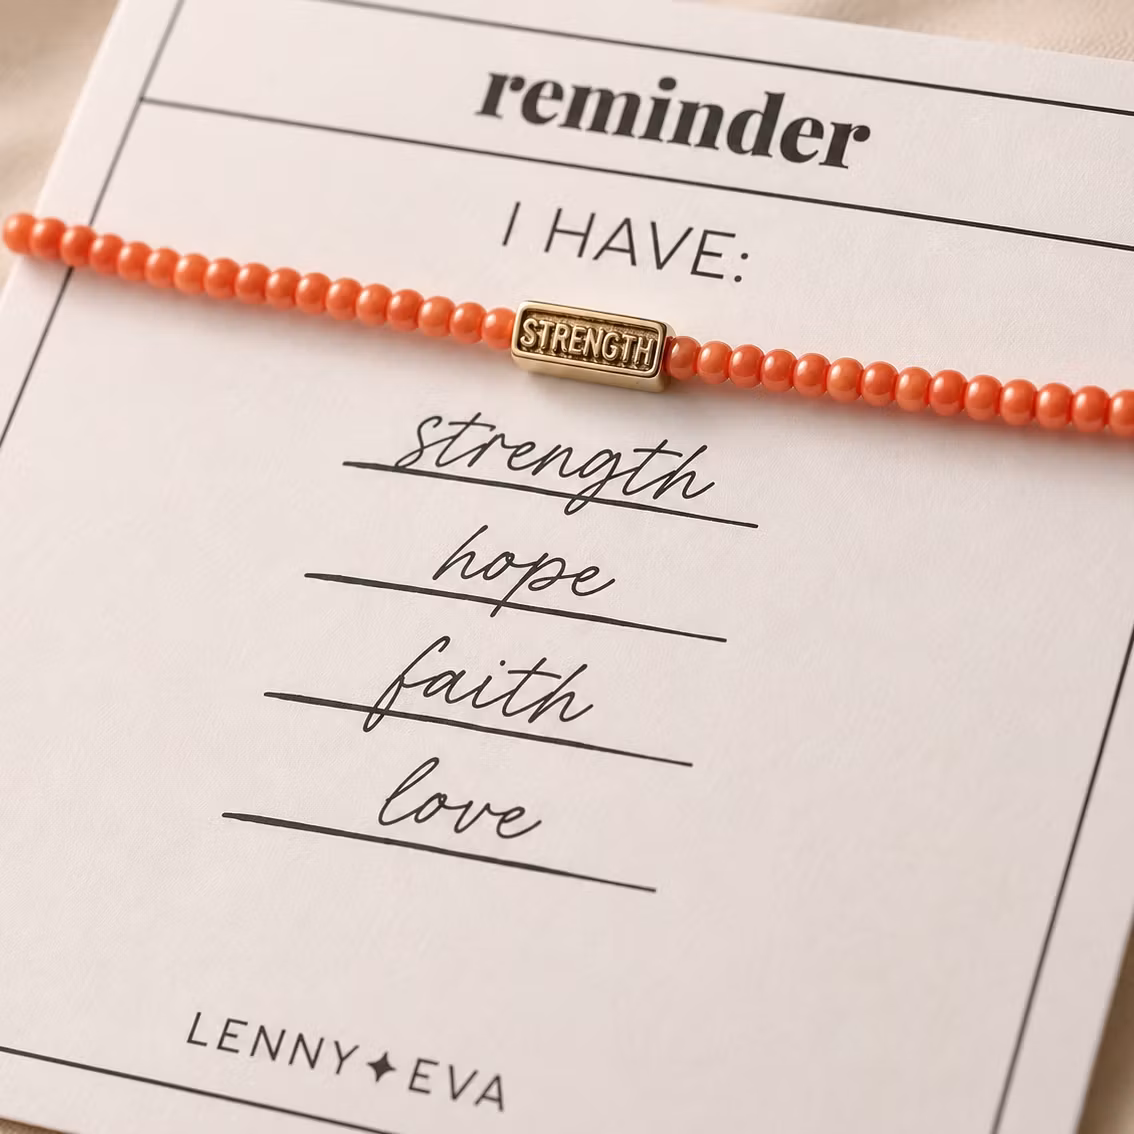 reminder
I HAVE:
STRENGTH
strength
hope
faith
love
LENNY✦EVA